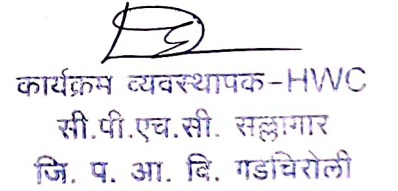 कार्यक्रम व्यवस्थापक-HWC
सी.पी.एच.सी. सल्लागार
जि. प. आ. वि. गडचिरोली